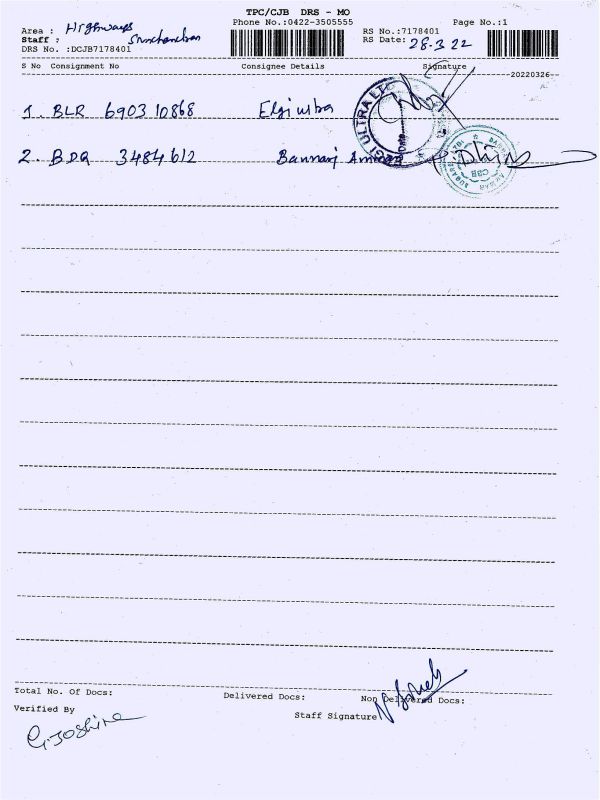 TPC/CJB DRS - MO
Phone No.:0422-3505555 Page No.:1
Area : Highways
Staff :
RS No.:7178401
RS Date: 28-3 22
DRS No. :DCJB7178401
S No Consignment No Consignee Details Signature
20220326
1. BLR 690310868 Elgi ultra
2. BDQ 3484612 Bannari Amman
ULTRA
CBE
Total No. Of Docs: Delivered Docs: Non Delivered Docs:
Verified By
Staff Signature
G.Joshina